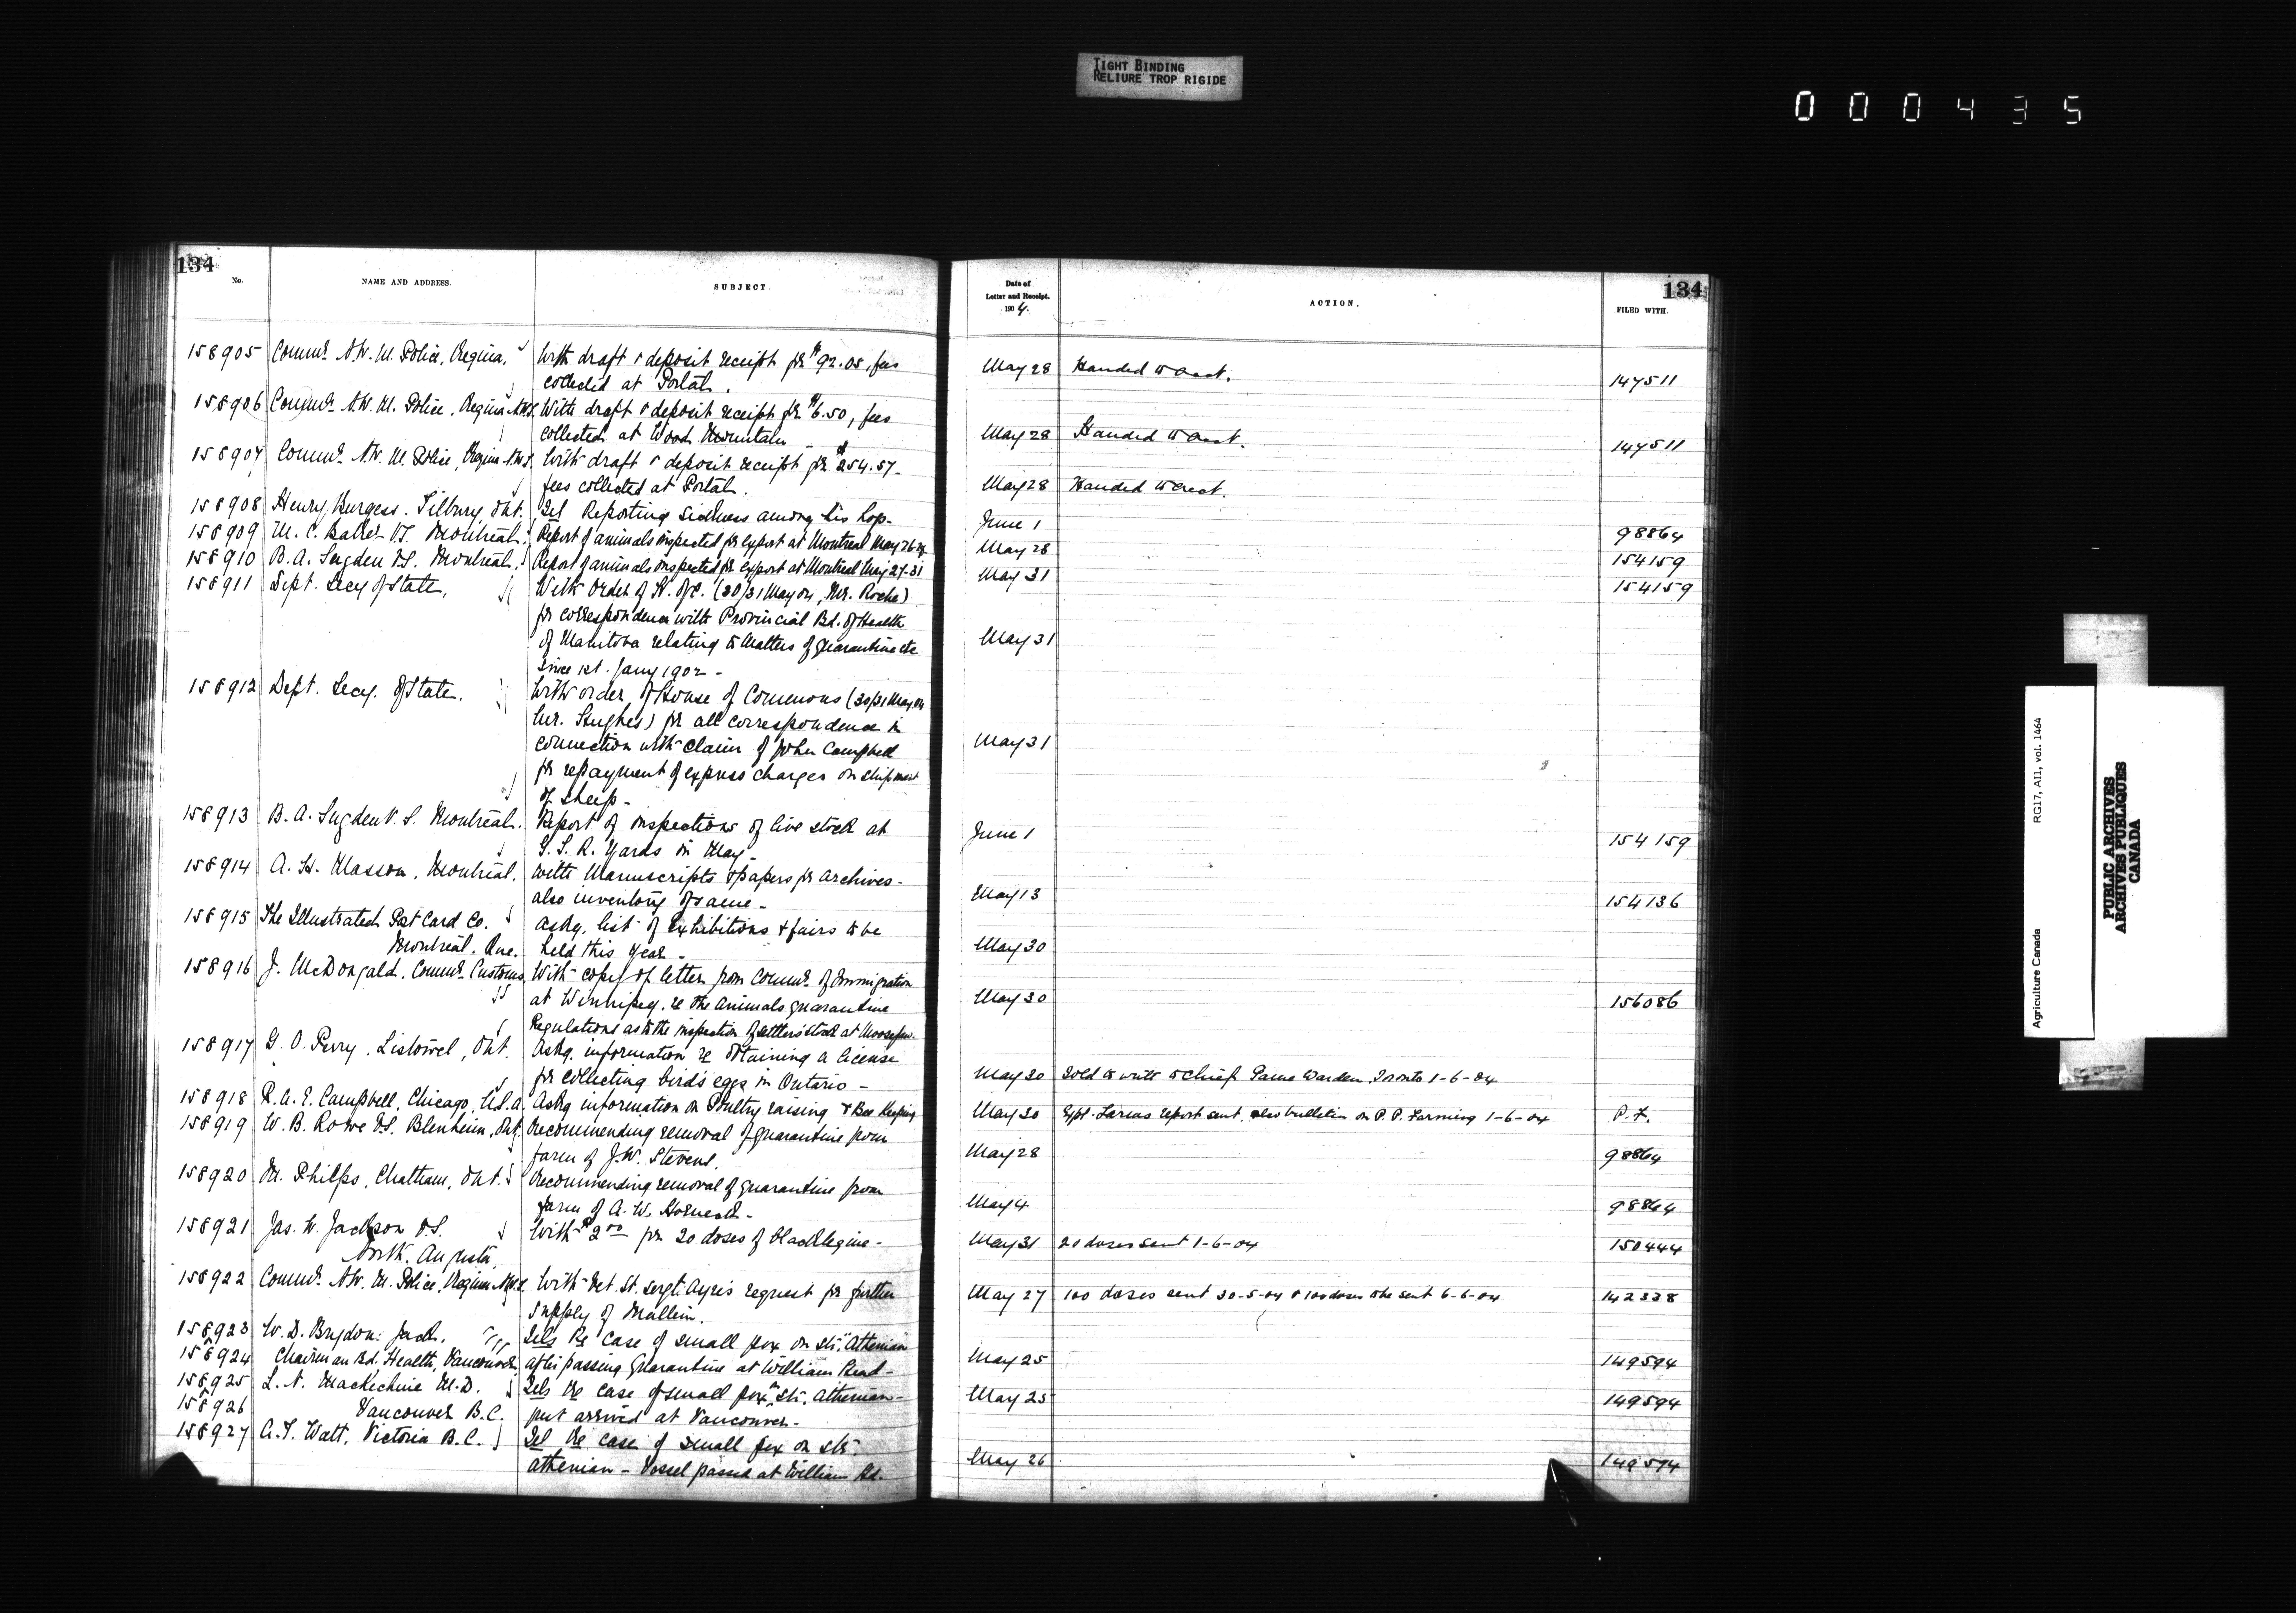 TIGHT BINDING
RELIURE TROP RIGIDE
000435
134
No. NAME AND ADDRESS. SUBJECT.
158905 Commr. N.W.M. Police, Regina, With draft & deposit receipt for $92.05, fees
collected at Portal.
158906 Commr. N.W.M. Police, Regina N.W.T. With draft & deposit receipt for $6.50, fees
collected at Wood Mountain -
158907 Commr. N.W.M. Police, Regina N.W.T. With draft & deposit receipt for $254.57-
fees collected at Portal.
158908 Henry Burgess. Tilbury, Ont. Tel Reporting sickness among his hogs-
158909 M. C. Baker V.S. Montreal. Report of animals inspected for export at Montreal May 26-
158910 B. A. Sugden V.S. Montreal. Report of animals inspected for export at Montreal May 27-31
158911 Dept. Secy of State, With order of H. of C. (30/31 May 04, Mr. Roche)
for correspondence with Provincial Bd. of Health
of Manitoba relating to matters of quarantine etc
since 1st. Jany 1902 -
158912 Dept. Secy. of State. With order of House of Commons (30/31 May 04
Mr. Hughes) for all correspondence in
connection with claim of John Campbell
for repayment of express charges on shipment
of sheep-
158913 B. A. Sugden V. S. Montreal. Report of inspections of live stock at
G. T. R. Yards in May-
158914 A. H. Masson, Montreal. With Manuscripts & papers for archives-
also inventory of same-
158915 The Illustrated Post Card Co. Askg. list of Exhibitions & fairs to be
Montreal. Que. held this year-
158916 J. McDougald. Commr. Customs With copy of letter from Commr. of Immigration
at Winnipeg. re the animals quarantine
Regulations as to the inspection of settlers stock at Moosejaw.
158917 G. O. Perry. Listowel, Ont. Askg. information re obtaining a license
for collecting bird's eggs in Ontario -
158918 R. A. E. Campbell, Chicago, U.S.A. Askg information on Poultry raising & Bee Keeping
158919 W. B. Rowe V.S. Blenheim, Ont. Recommending removal of quarantine from
farm of J. W. Stevens.
158920 M. Philps, Chatham, Ont. Recommending removal of quarantine from
farm of A. W.
158921 Jas. W. Jackson V.S. With $2 00 for 20 doses of blacklegine-
North Augusta,
158922 Commr. N.W.M. Police, Regina N.W.T. With Vet. St. Sergt. Ayris request for further
supply of Mallein.
158923 W. D. Brydon-Jack. Tels Re case of small pox on str. "Athenian"
158924 Chairman Bd. Health, Vancouver after passing Quarantine at William Head-
158925 L. N. MacKechnie M.D. Tels Re case of small pox on str. Athenian-
158926 Vancouver B.C. just arrived at Vancouver-
158927 A. T. Watt, Victoria B.C. Tel Re case of small pox on str.
Athenian - Vessel passed at William Hd.
134
Date of
Letter and Receipt.
1904.
ACTION. FILED WITH.
May 28 Handed to Acct. 147511
May 28 Handed to Acct. 147511
May 28 Handed to Acct.
June 1 98864
May 28 154159
May 31 154159
May 31
May 31
June 1 154159
May 13 154136
May 30
May 30 156086
May 30 Told to write to Chief Game Warden, Toronto 1-6-04
May 30 Exptl. Farms report sent, also bulletin on P. P. Farming 1-6-04 P. F.
May 28 98864
May 4 98864
May 31 20 doses sent 1-6-04 150444
May 27 100 doses sent 30-5-04 & 100 doses sent 6-6-04 142338
May 25 149594
May 25 149594
May 26 149594
Agriculture Canada RG17, A11, vol. 1464
PUBLIC ARCHIVES
ARCHIVES PUBLIQUES
CANADA